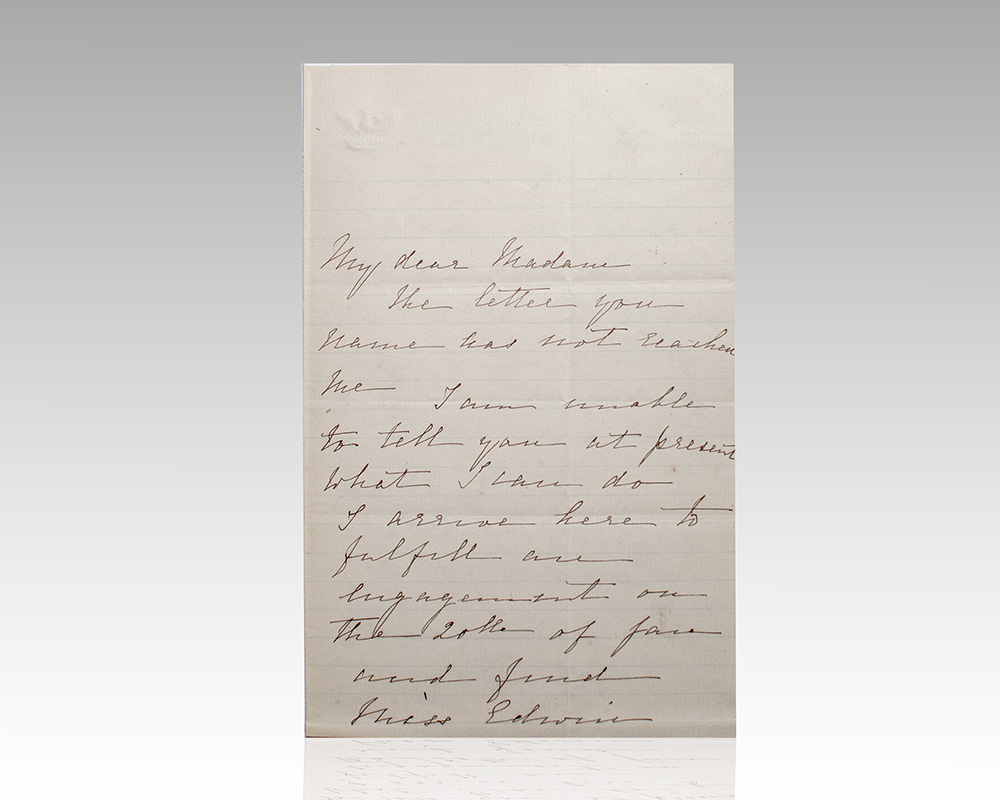 My dear Madam
The letter you
name has not reached
me I am unable
to tell you at present
what I can do
I arrive here to
fulfill an
engagement on
the 20th of Jan
and find
Miss Edwin